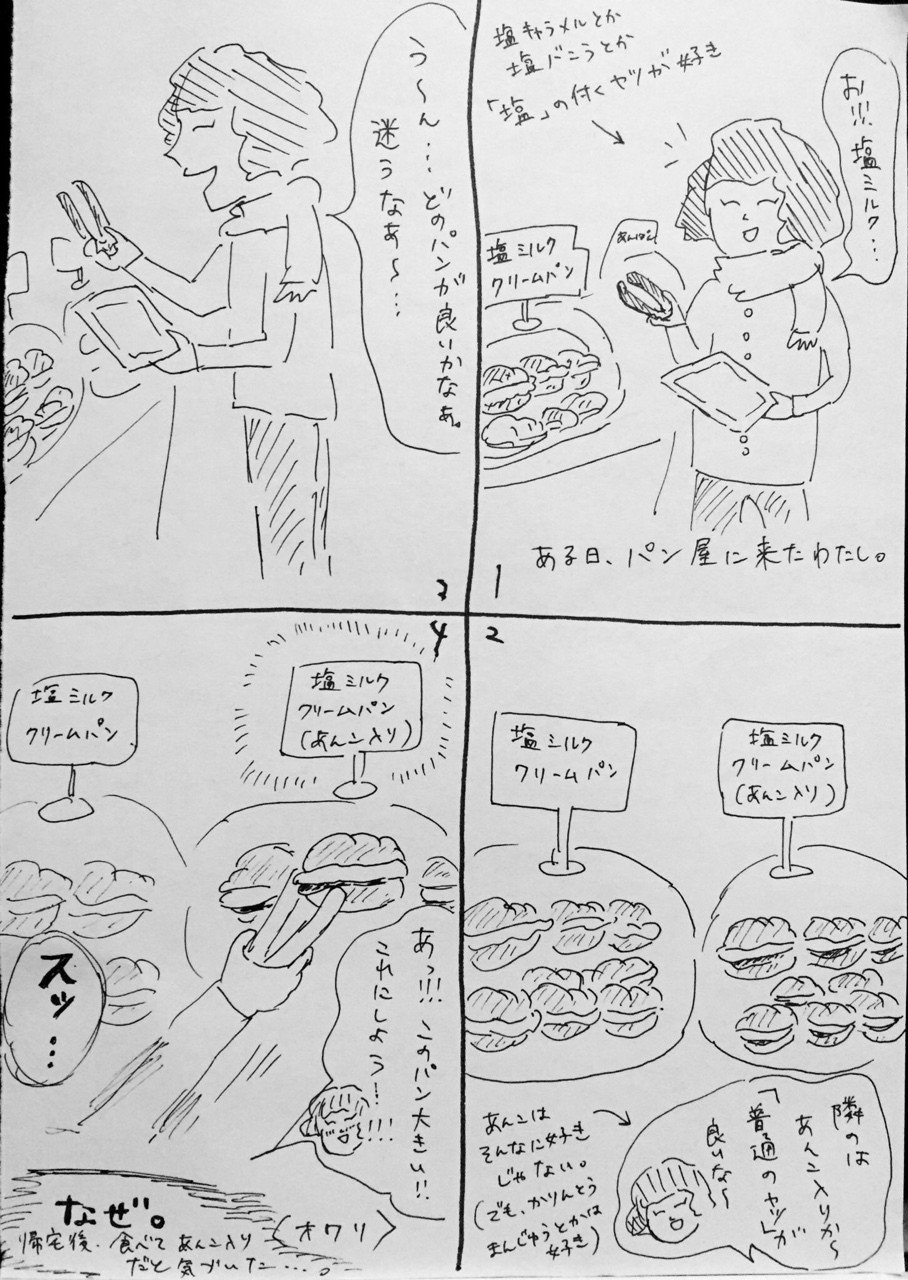 1
お!!! 塩ミルク…
塩キャラメルとか
塩バニラとか
「塩」の付くヤツが好き
塩ミルク
クリームパン
あんぱん
ある日、パン屋に来たわたし。
2
塩ミルク
クリームパン
(あんこ入り)
塩ミルク
クリームパン
隣のは
あんこ入りか〜
「普通のヤツ」が
良いな〜
あんこは
そんなに好き
じゃない。
(でも、かりんとう
まんじゅうとかは
好き)
3
う〜ん…どのパンが良いかなぁ。
迷うなあ〜…
4
塩ミルク
クリームパン
(あんこ入り)
塩ミルク
クリームパン
あっ!!! このパン大きい!!
これにしよう!!!!
スッ…
なぜ。
帰宅後、食べてあんこ入り
だと気づいた…。
〈オワリ〉